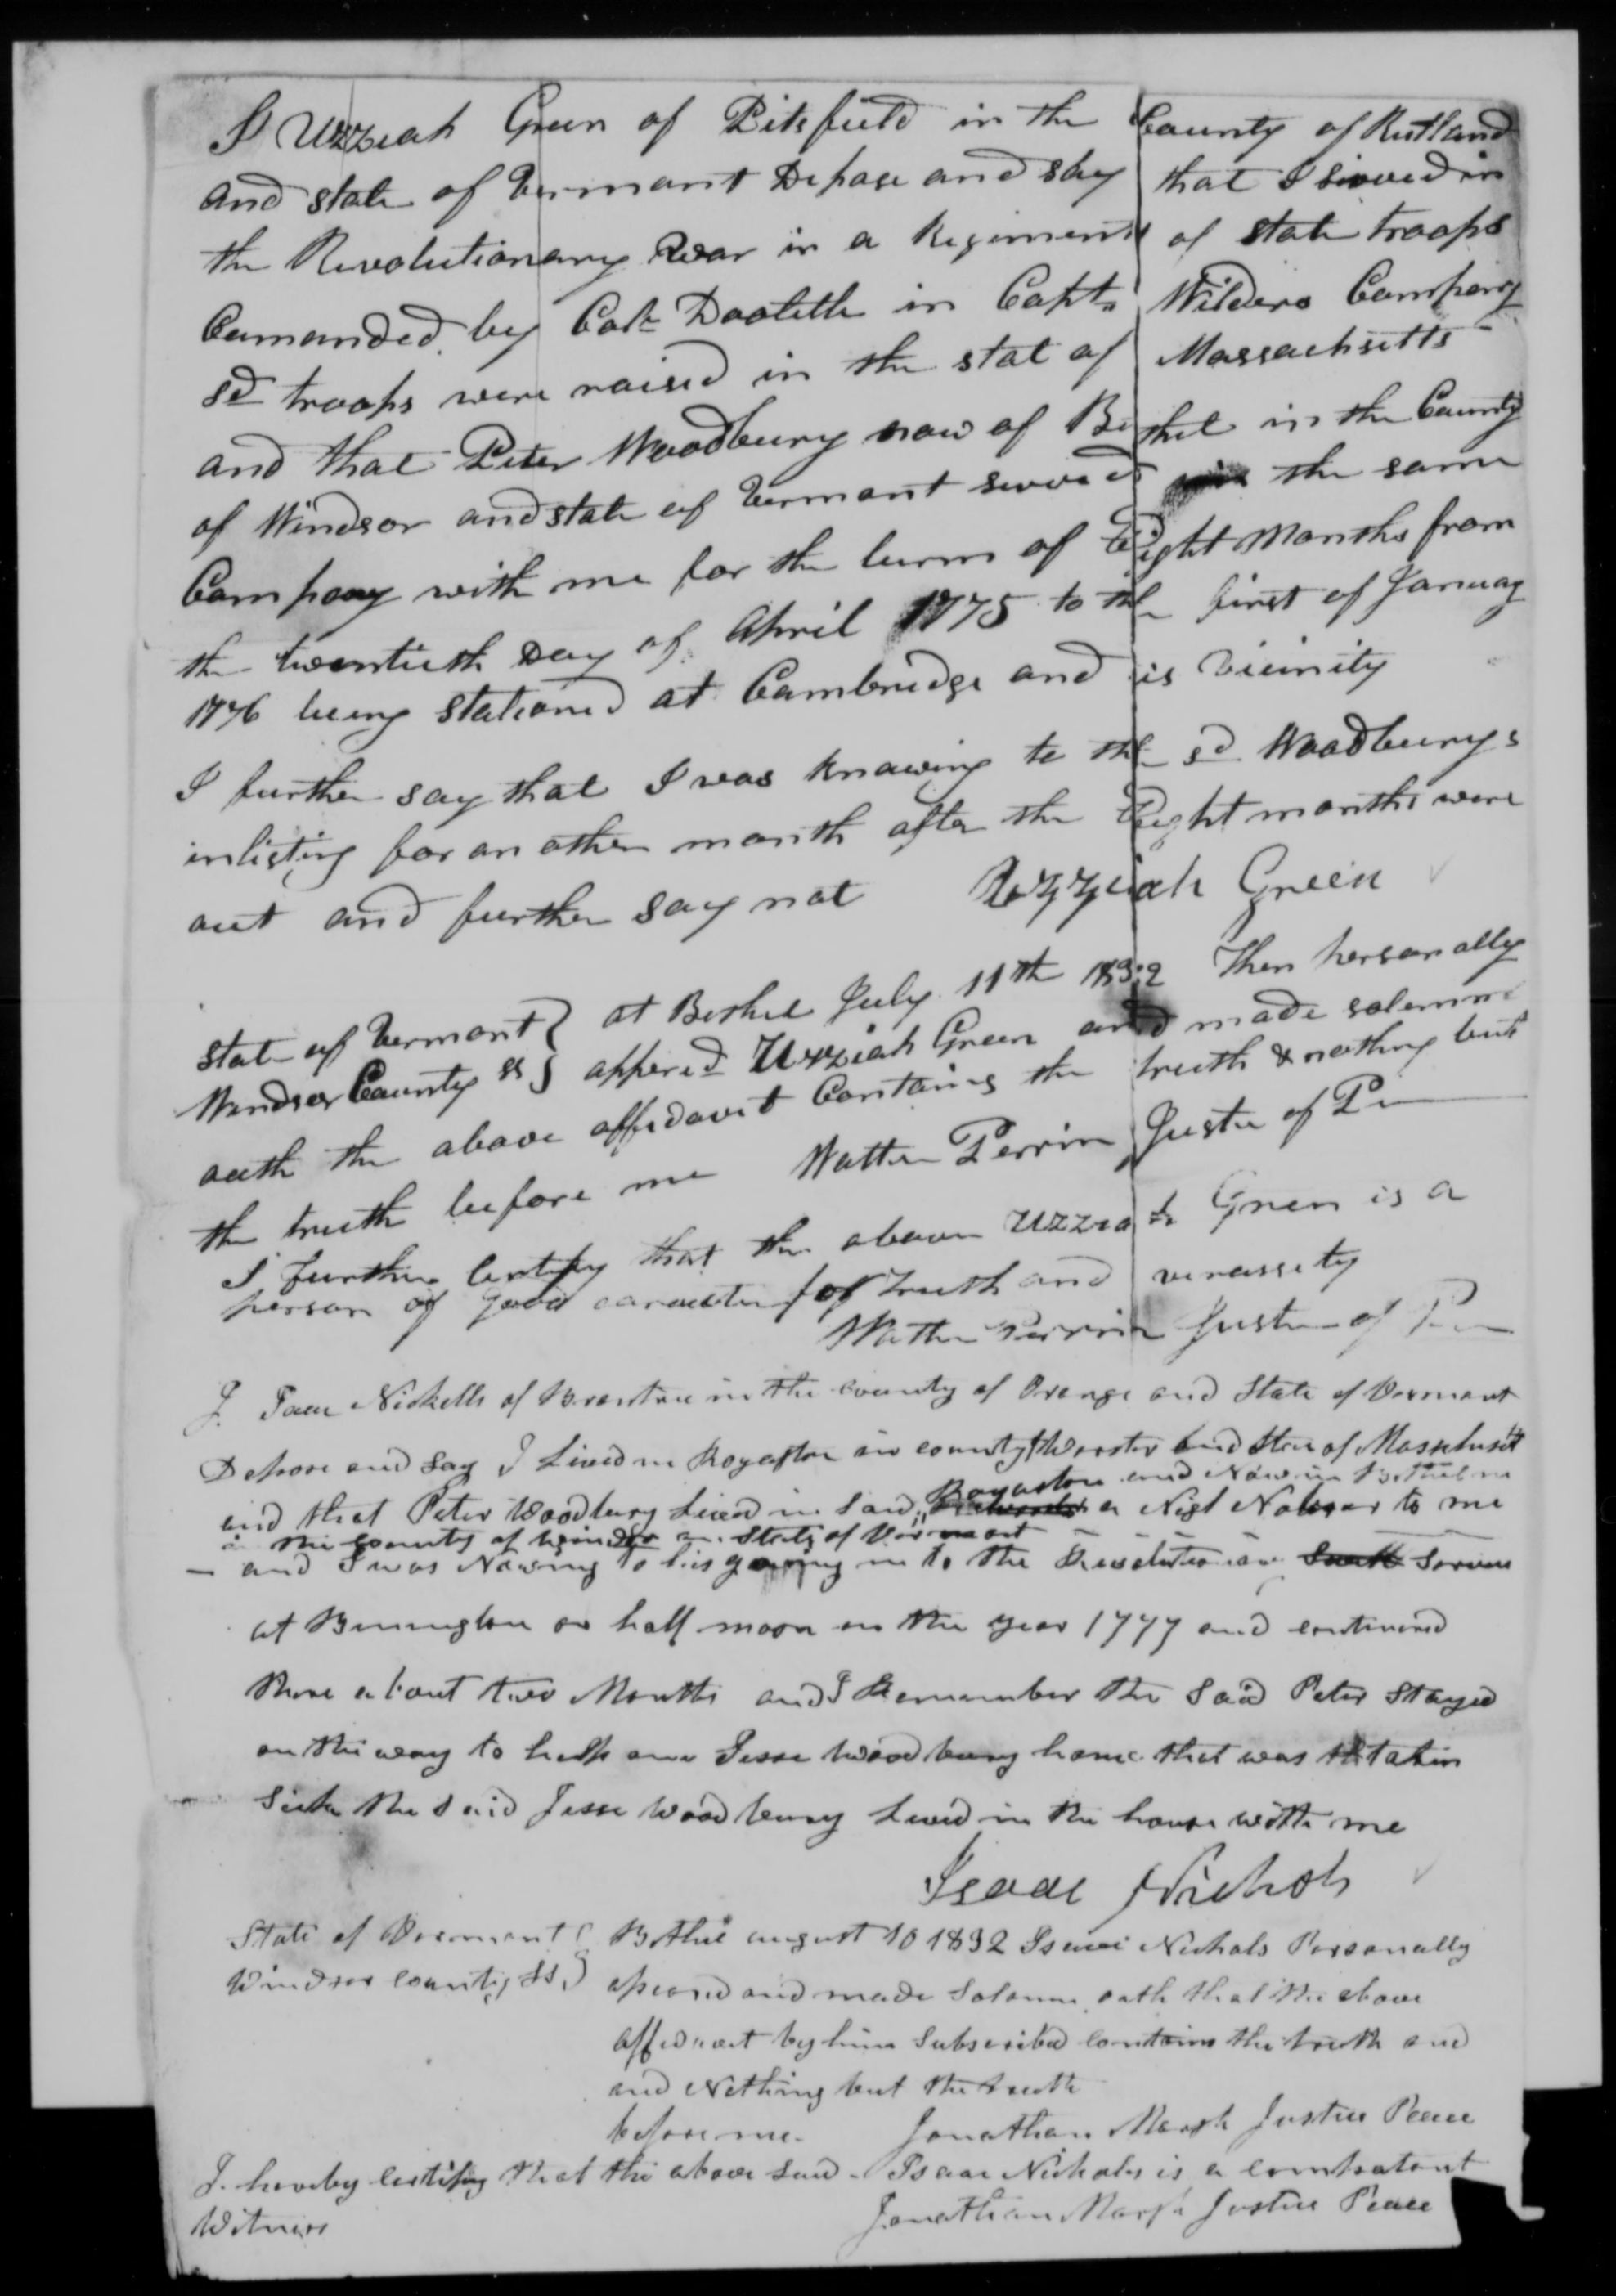 I Uzziah Green of Pitsfield in the County of Rutland
and state of Vermont Depose and say that I served in
the Revolutionary War in a Regiment of state troops
Comanded by Col Doolittle in Capt Wilders Company
sd troops were raised in the stat of Massachsetts
and that Peter Woodbury now of Bethel in the County
of Windsor and state of Vermont served in the same
Company with me for the turm of Eight Months from
the twentieth Day of April 1775 to the first of January
1776 being stationed at Cambridge and is vicinity
I further say that I was knowing to the sd Woodburys
inlisting for another month after the Eight months were
out and further say not Uzziah Green
State of Vermont } at Bethel July 11th 1832 Then personally
Windsor County ss } appered Uzziah Green and made solemn
oath the above affidavit Contains the truth & nothing but
the truth before me Walter Perrin Juste of P
I further Certify that the above Uzziah Green is a
person of good caracter for truth and verassety
Walter Perrin Juste of P
I Isaac Nickells of Brantree in the county of Orange and State of Vermont
Depose and Say I Lived in Royalston in county of Worster and State of Massachusett
Royalston and Now in Bethel in
and that Peter Woodbury Lived in Said a Nigh Nabour to me
in the county of Windsor in State of Vermont
and I was Nowing to his going in to the Revolutionar Servis
at Bennington or half moon in the year 1777 and continued
there about two Months and I Remember the Said Peter Stayed
on the way to help one Jesse Woodbury home that was taken
Sick the Said Jesse Woodbury Lived in the house with me
Isaac Nichols
State of Vermont } Bethel august 10 1832 Isaac Nichols Personally
Windsor county ss } apeared and made Solomn oath that the above
affidavit by him Subscribed contains the truth and
and Nothing but the truth
before me. Jonathan Marsh Justice Peace
I hereby certify that the above Said Isaac Nichols is a compatant
Witness Jonathan Marsh Justice Peace